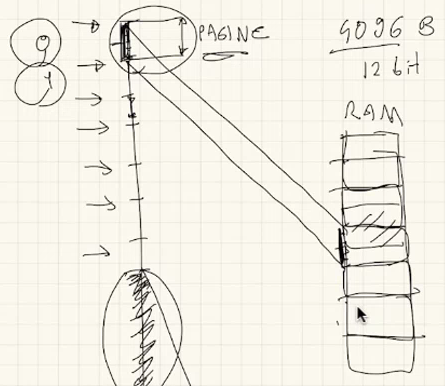 0
1
PAGINE
4096 B
12 bit
RAM